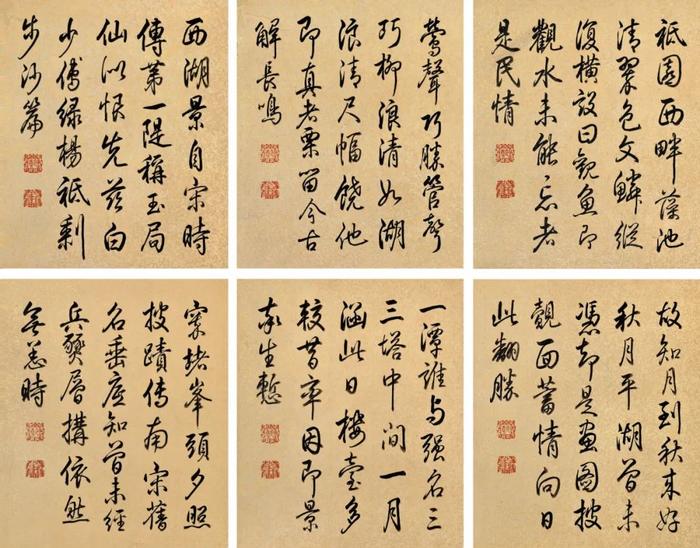 祗園西畔藻池
清翠色文鱗縱
復橫設曰觀魚即
觀水未能忘者
是民情
鶯聲巧勝管聲
巧柳浪清如湖
浪清尺幅饒他
即真者栗留今古
解長鳴
西湖景自宋時
傳第一隄稱玉局
仙似恨先茲白
少傅綠楊祗剩
步沙篇
故知月到秋來好
秋月平湖曾未
憑卻是畫圖披
覿面蓄情向日
此翻勝
一潭誰与强名三
三塔中間一月
涵此日樓臺多
較昔率因即景
生慙
窣堵峯頭夕照
披蹟傳南宋舊
名垂應知曾未經
兵燹層搆依然
無恙時